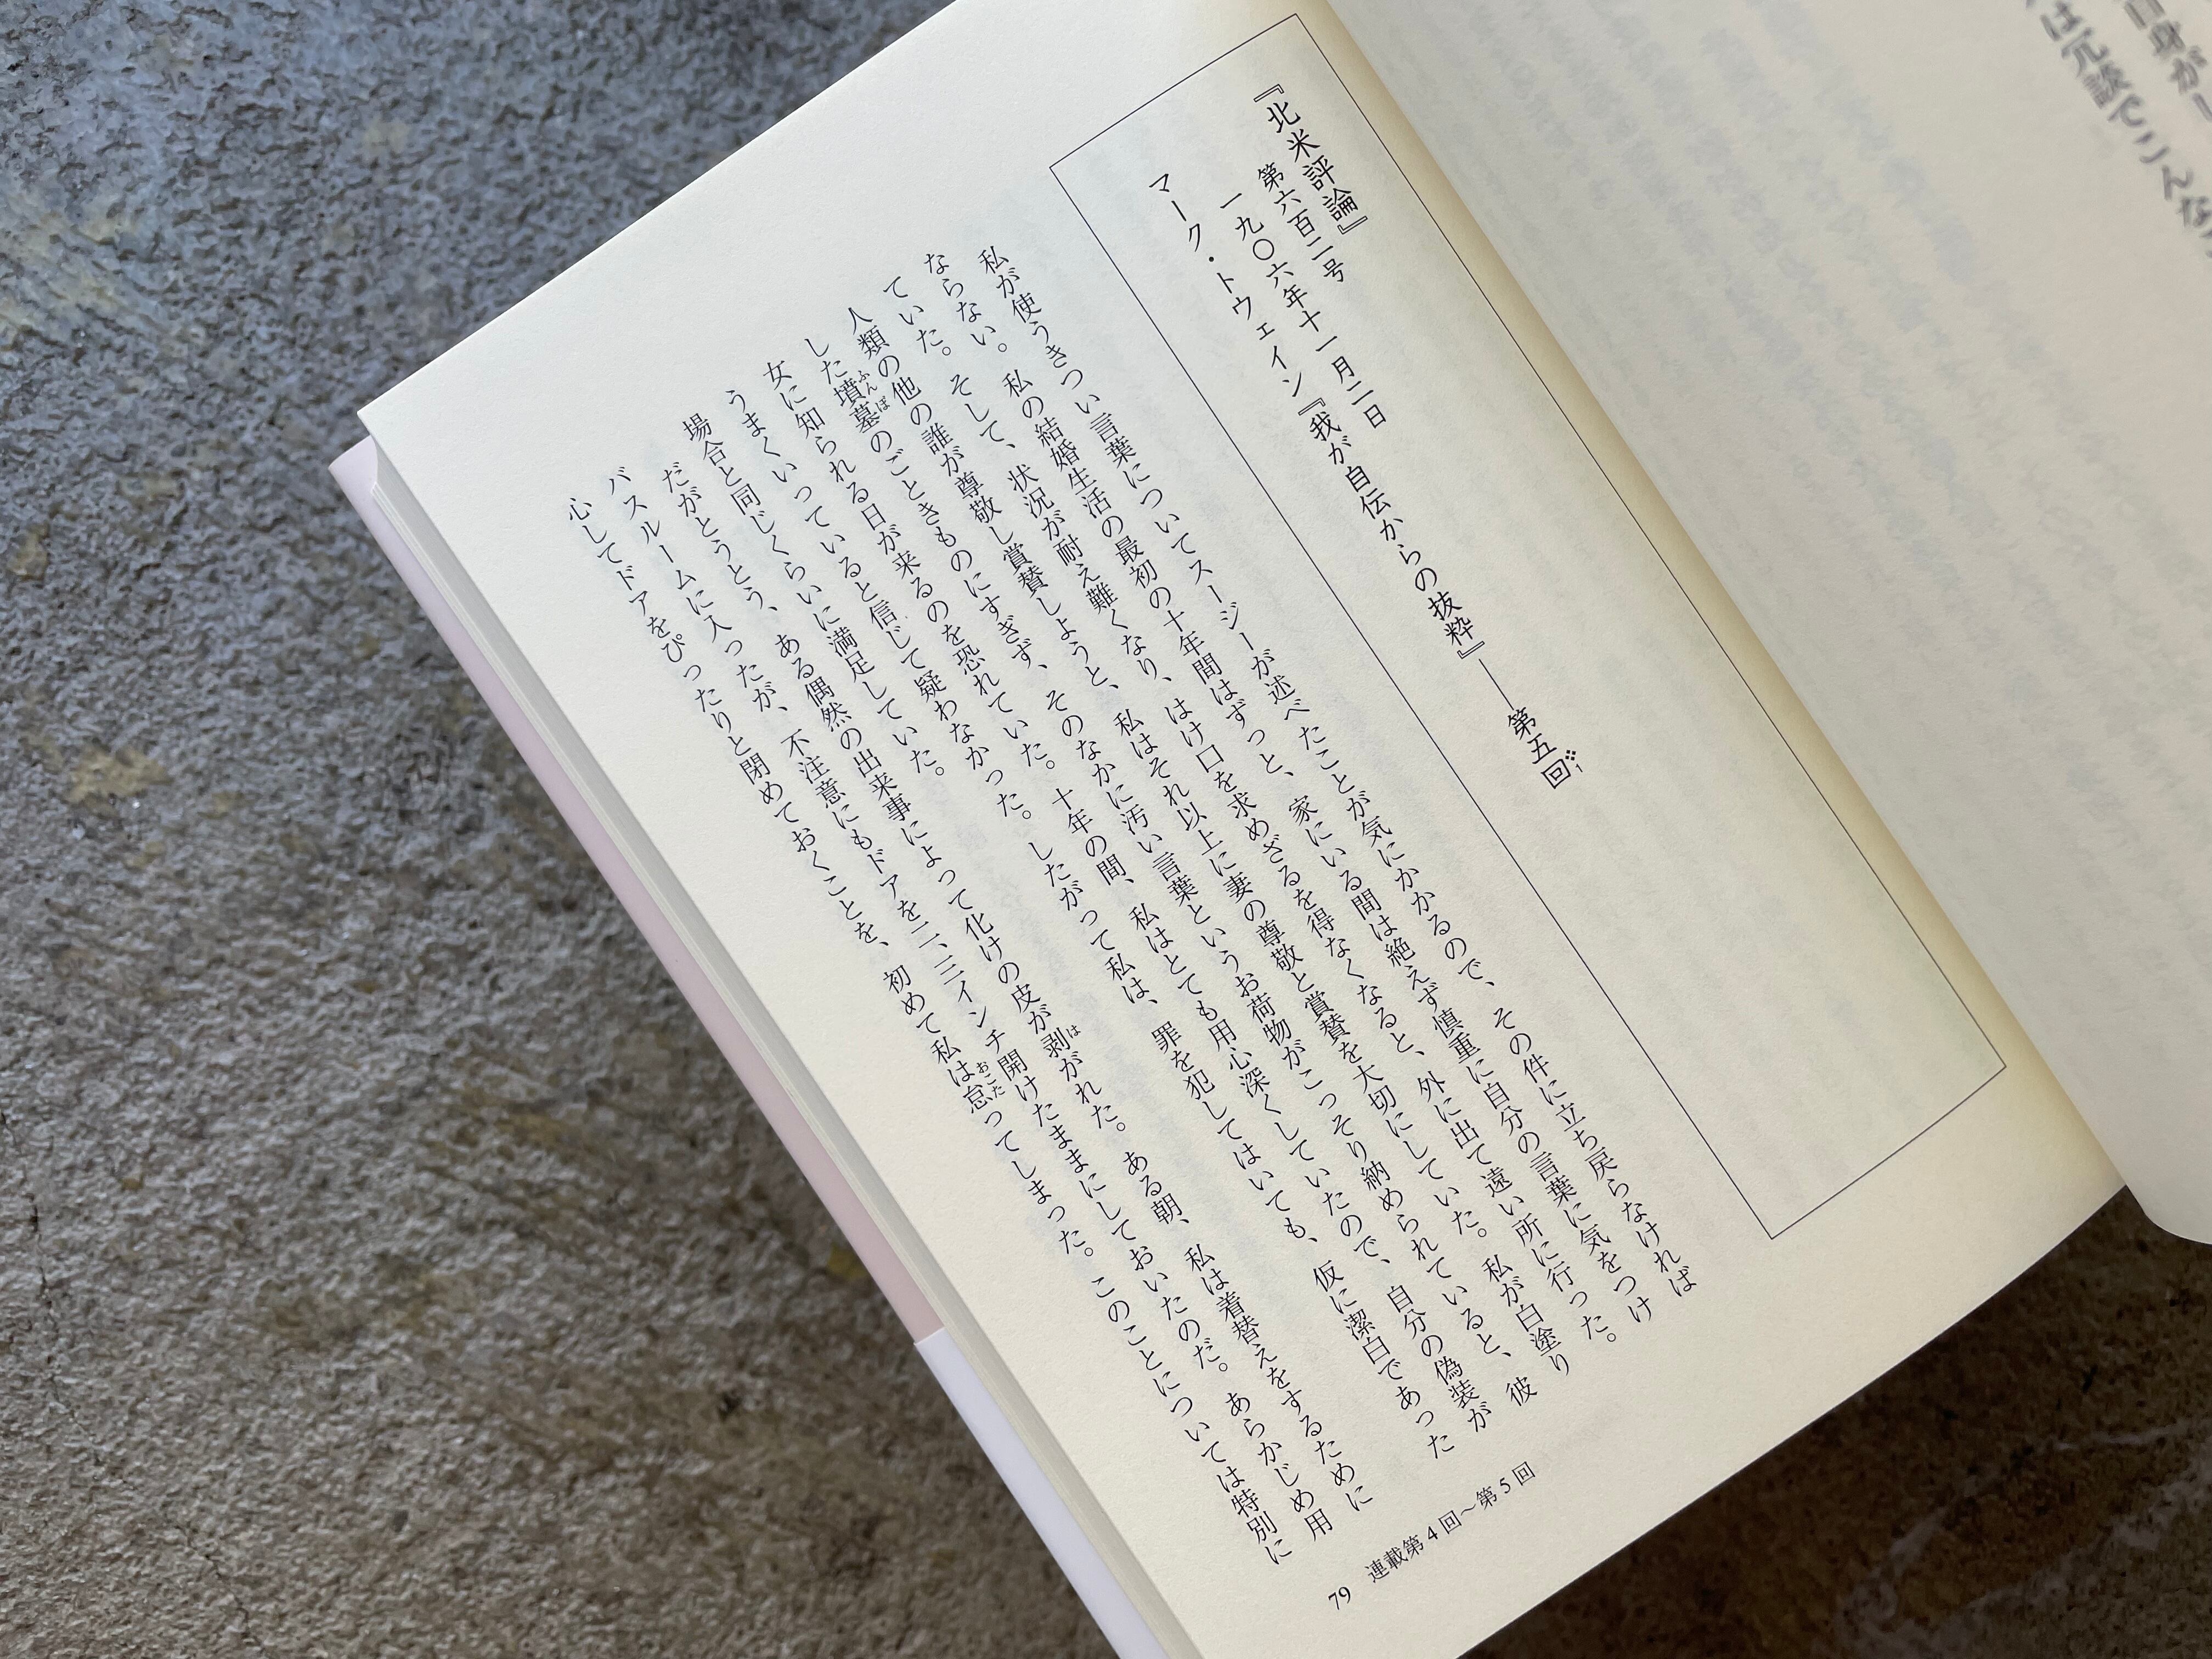 自身が
は冗談でこんな
『北米評論』
第六百二号
一九〇六年十一月二日
マーク・トウェイン『我が自伝からの抜粋』――第五回※1
私が使うきつい言葉についてスージーが述べたことが気にかかるので、その件に立ち戻らなければ
ならない。私の結婚生活の最初の十年間はずっと、家にいる間は絶えず慎重に自分の言葉に気をつけ
ていた。そして、状況が耐え難くなり、はけ口を求めざるを得なくなると、外に出て遠い所に行った。
人類の他の誰が尊敬し賞賛しようと、私はそれ以上に妻の尊敬と賞賛を大切にしていた。私が白塗り
した墳墓のごときものにすぎず、そのなかに汚い言葉というお荷物がこっそり納められていると、彼
女に知られる日が来るのを恐れていた。十年の間、私はとても用心深くしていたので、自分の偽装が
うまくいっていると信じて疑わなかった。したがって私は、罪を犯してはいても、仮に潔白であった
場合と同じくらいに満足していた。
だがとうとう、ある偶然の出来事によって化けの皮が剥がれた。ある朝、私は着替えをするために
バスルームに入ったが、不注意にもドアを二、三インチ開けたままにしておいたのだ。あらかじめ用
心してドアをぴったりと閉めておくことを、初めて私は怠ってしまった。このことについては特別に
79 連載第4回～第5回